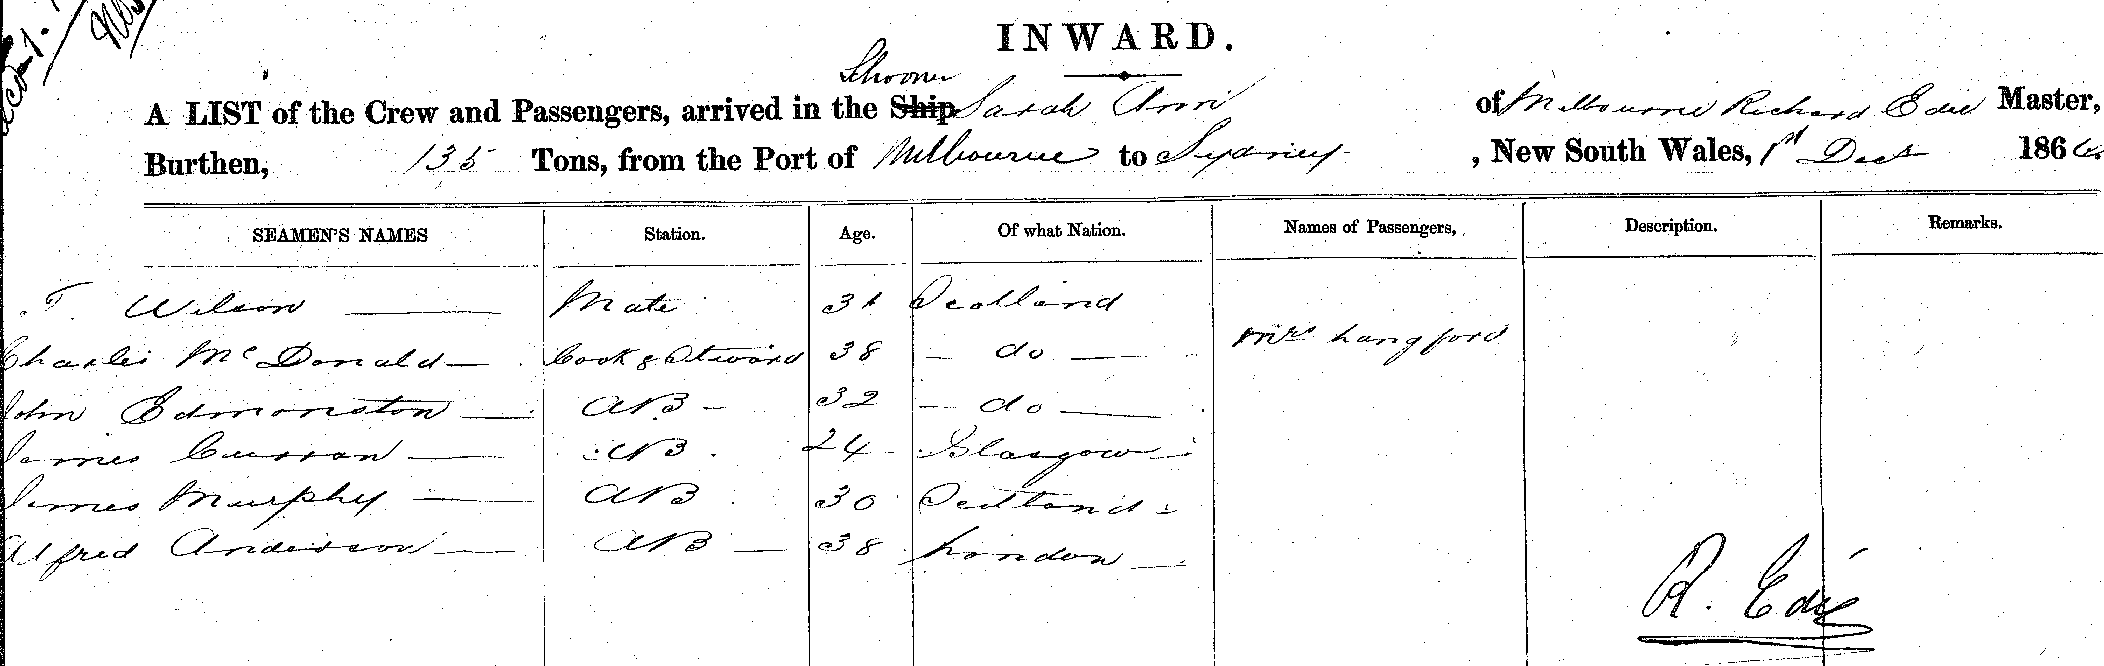 INWARD.
Schooner
A LIST of the Crew and Passengers, arrived in the Ship Sarah Ann of Melbourne Richard Edie Master,
Burthen, 135 Tons, from the Port of Melbourne to Sydney , New South Wales, 1st Decr 1866
SEAMEN'S NAMES Station. Age. Of what Nation. Names of Passengers, Description. Remarks.
T Wilson Mate 31 Scotland
Mrs Langford
Charles McDonald Cook & Steward 38 - do -
John Edmonston AB - 32 - do -
James Curran AB 24 Glasgow
James Murphy AB 30 Scotland
Alfred Anderson AB - 38 London
R. Edie